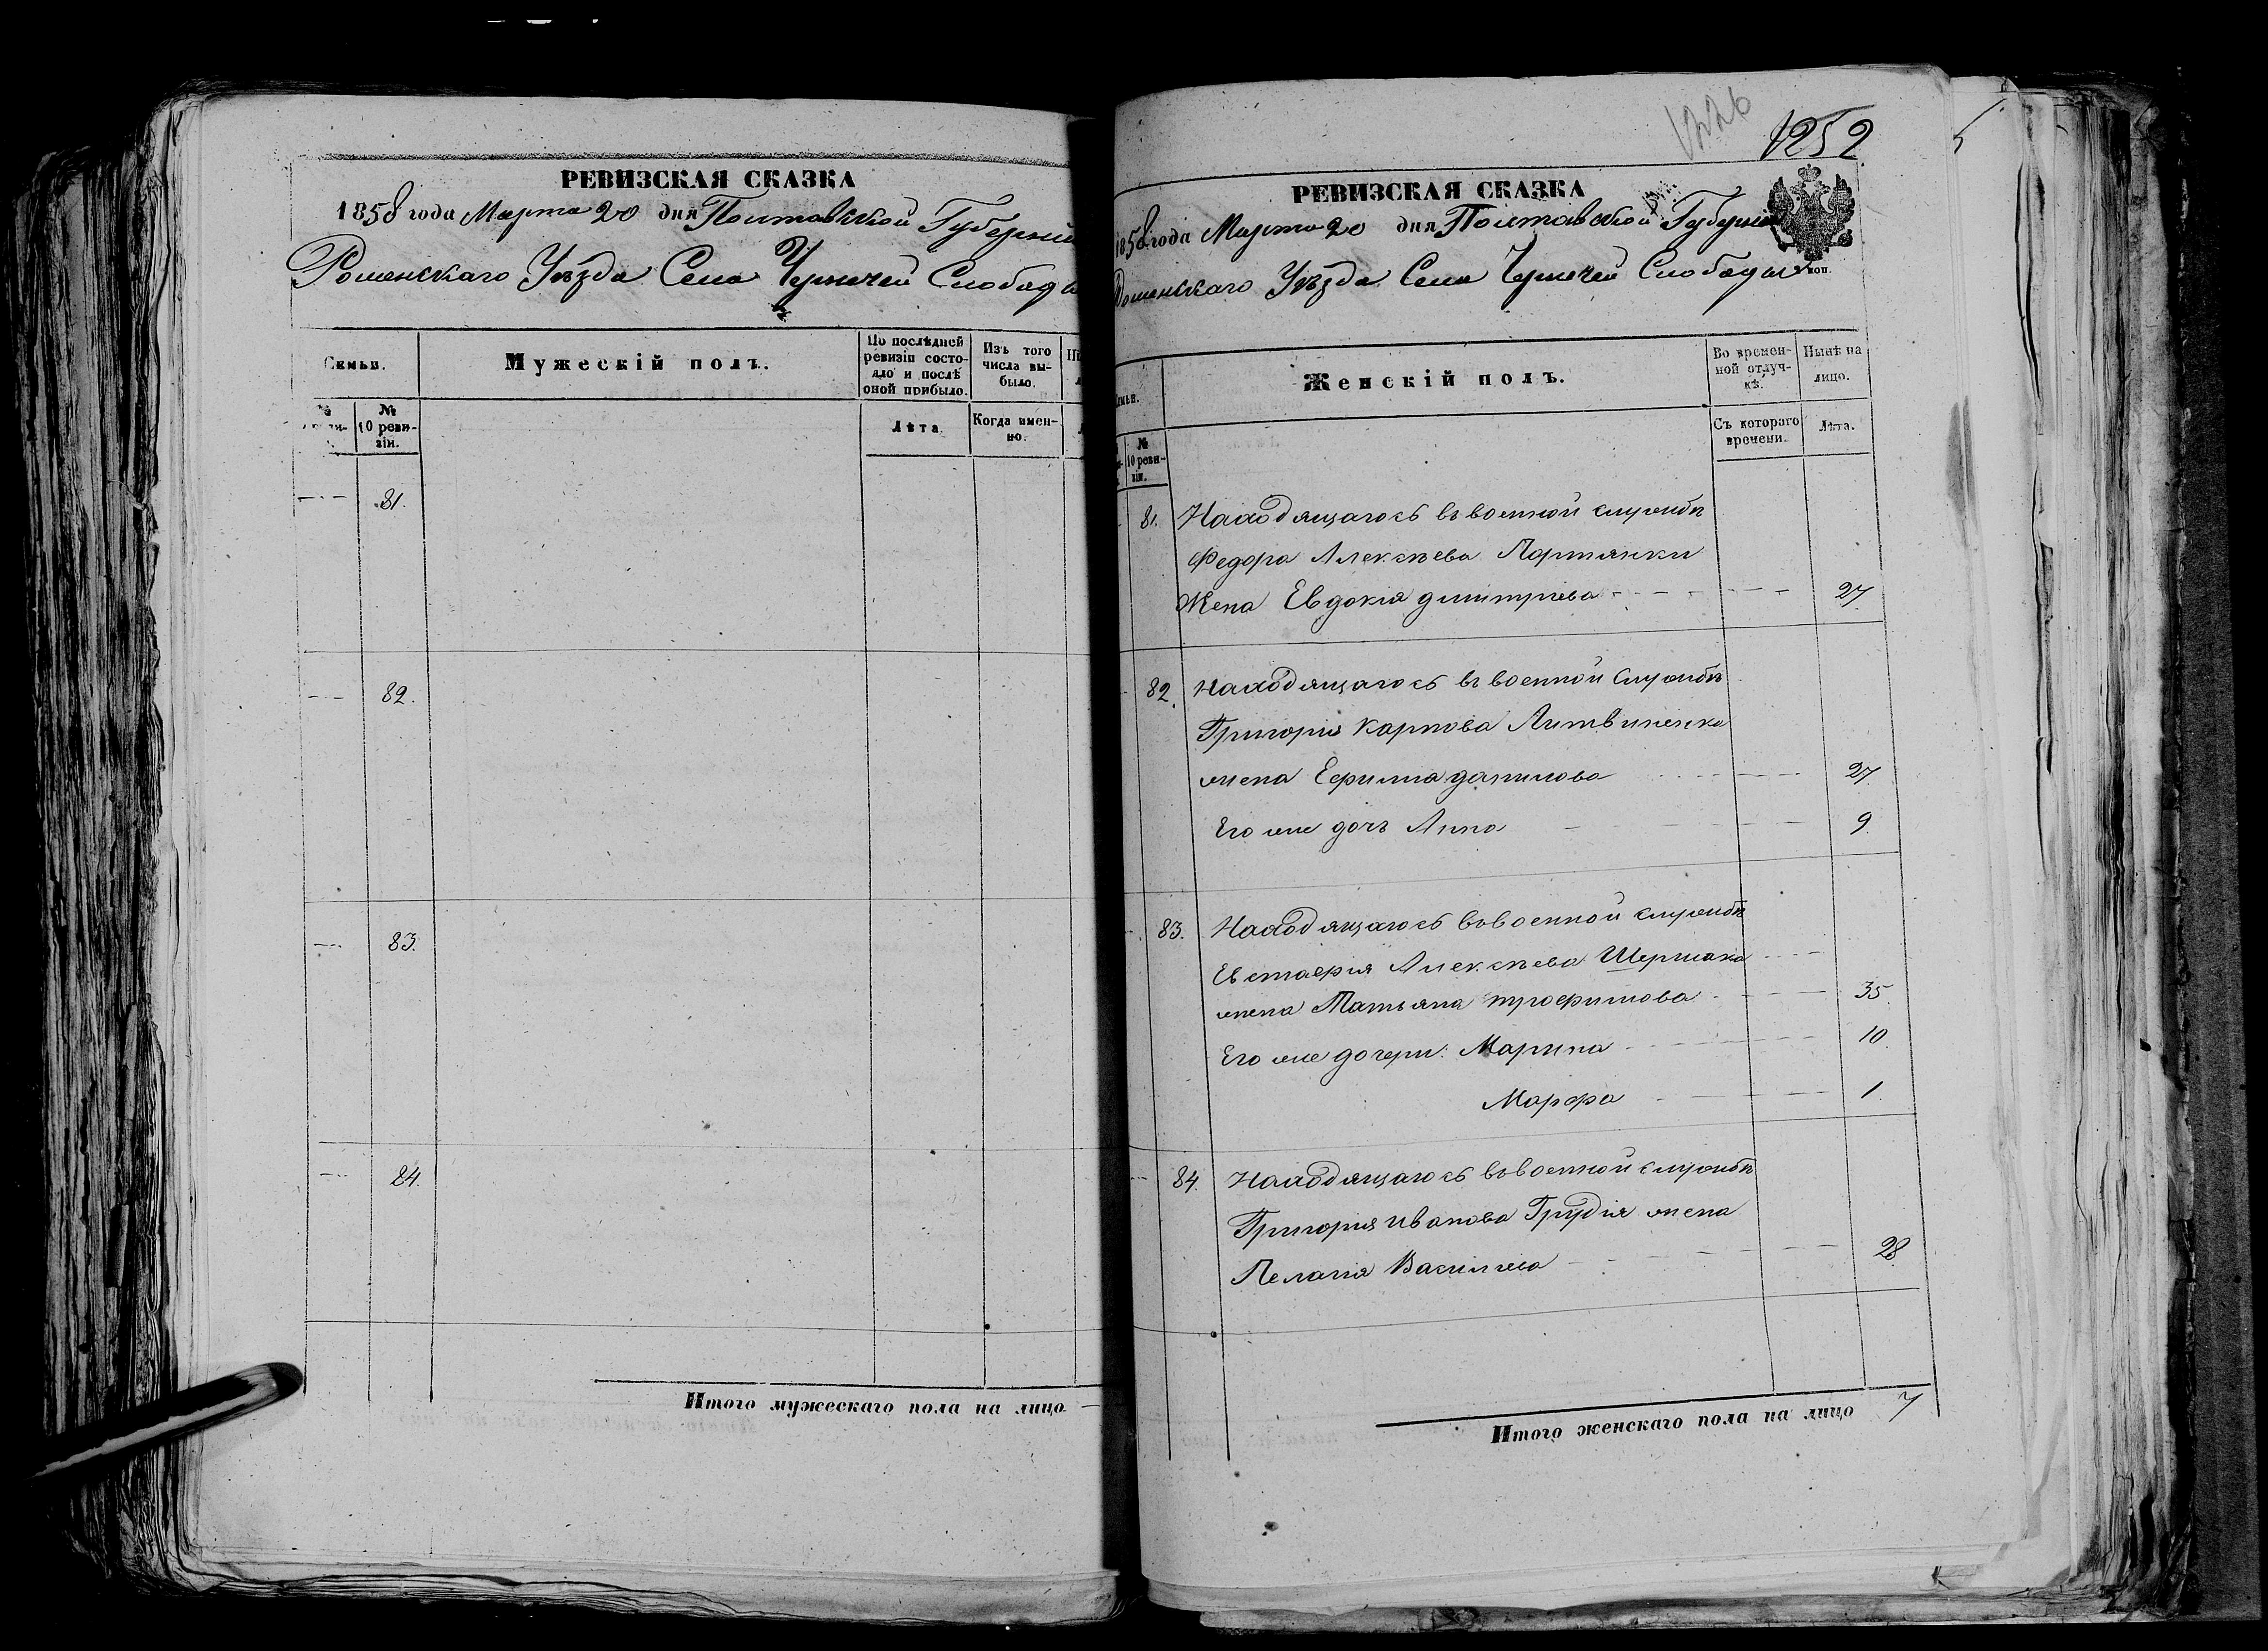 РЕВИЗСКАЯ СКАЗКА
1858 года Марта 20 дня Полтавской Губерніи
Роменскаго Уѣзда Села Чернечей Слободы
Семьи.
Мужескій полъ.
По послѣдней ревизіи состояло и послѣ оной прибыло.
Изъ того числа выбыло.
№ 10 ревизіи.
Лѣта.
Когда именно.
81.
82.
83.
84.
Итого мужескаго пола на лицо —
1226
1252
РЕВИЗСКАЯ СКАЗКА
1858 года Марта 20 дня Полтавской Губерніи
Роменскаго Уѣзда Села Чернечей Слободы
коп.
Женскій полъ.
Во временной отлучкѣ.
Нынѣ на лицо.
№ 10 ревизіи.
Съ котораго времени.
Лѣта.
81. Находящагось въ военной службѣ
Федора Алексѣева Портянки
Жена Евдокія димитріева 27.
82. Находящагось въ военной Службѣ
Григорія Карпова Литвиненка
жена Ефимія данилова 27.
Его же дочь Анна 9.
83. Находящагось въ военной службѣ
Евстафія Алексѣева Шершака
жена Татьяна трофимова 35.
Его же дочери: Марина 10.
Марфа 1.
84. Находящагось въ военной службѣ
Григорія иванова Грудія жена
Пелагія Василіева 28.
Итого женскаго пола на лицо 7